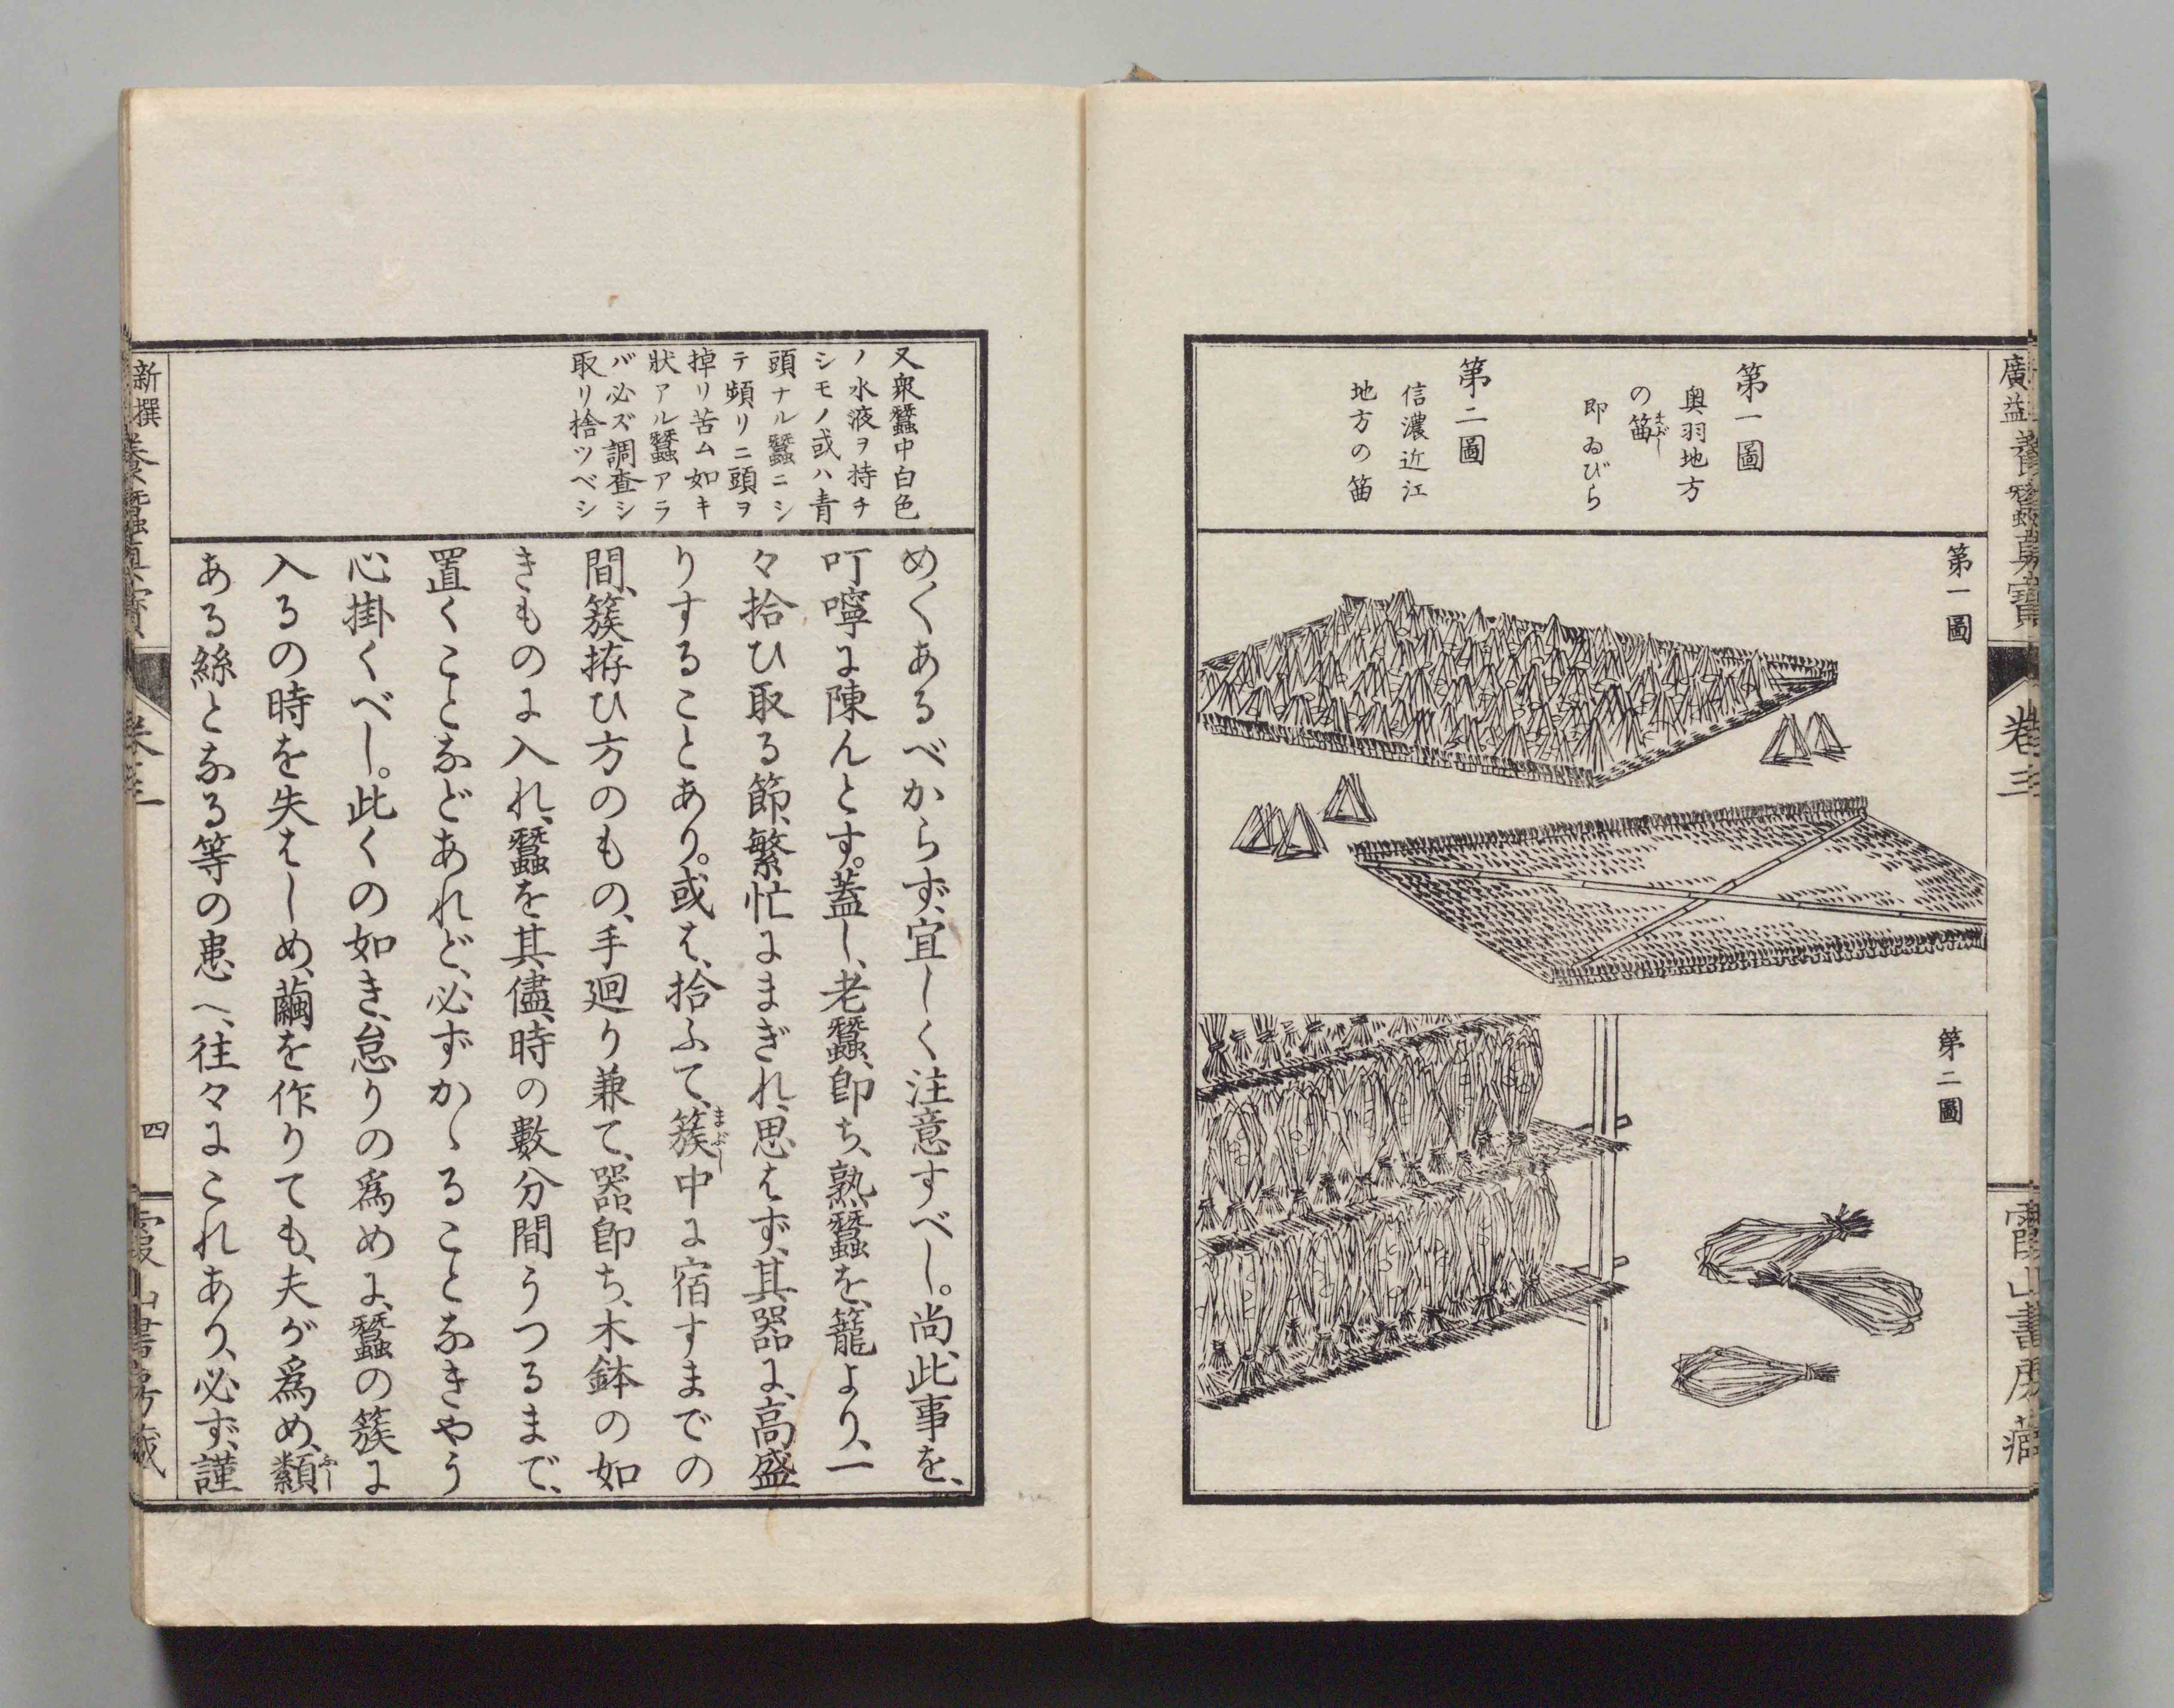 第一圖
奥羽地方
の𥬎
まぶし
即ゐびら
第二圖
信濃近江
地方の𥬎
第一圖
第二圖
廣益
養蠶
寶
卷三
霞山書房藏
又衆蠶中白色
ノ水液ヲ持チ
シモノ或ハ青
頭ナル蠶ニシ
テ頻リニ頭ヲ
掉リ苦ム如キ
狀アル蠶アラ
バ必ズ調査シ
取リ捨ツベシ
めくあるべからず、宜しく注意すべし。尚、此事を、
叮嚀に陳んとす。蓋し、老蠶、卽ち、熟蠶を、籠より、一
々拾ひ取る節、繁忙にまぎれ、思はず、其器に、高盛
りすることあり。或は、拾ふて、簇中に宿すまでの
まぶし
間、簇拵ひ方のもの、手廻り兼て、器卽ち、木鉢の如
きものに入れ、蠶を其儘、時の數分間うつるまで、
置くことなどあれど、必ずかゝることなきやう
心掛くべし。此くの如き、怠りの爲めに、蠶の簇に
入るの時を失はしめ、繭を作りても、夫が爲め、纇
ふし
ある絲となる等の患へ、往々にこれあり、必ず、謹
新撰養蠶眞寶
卷三
四
霞山書房藏